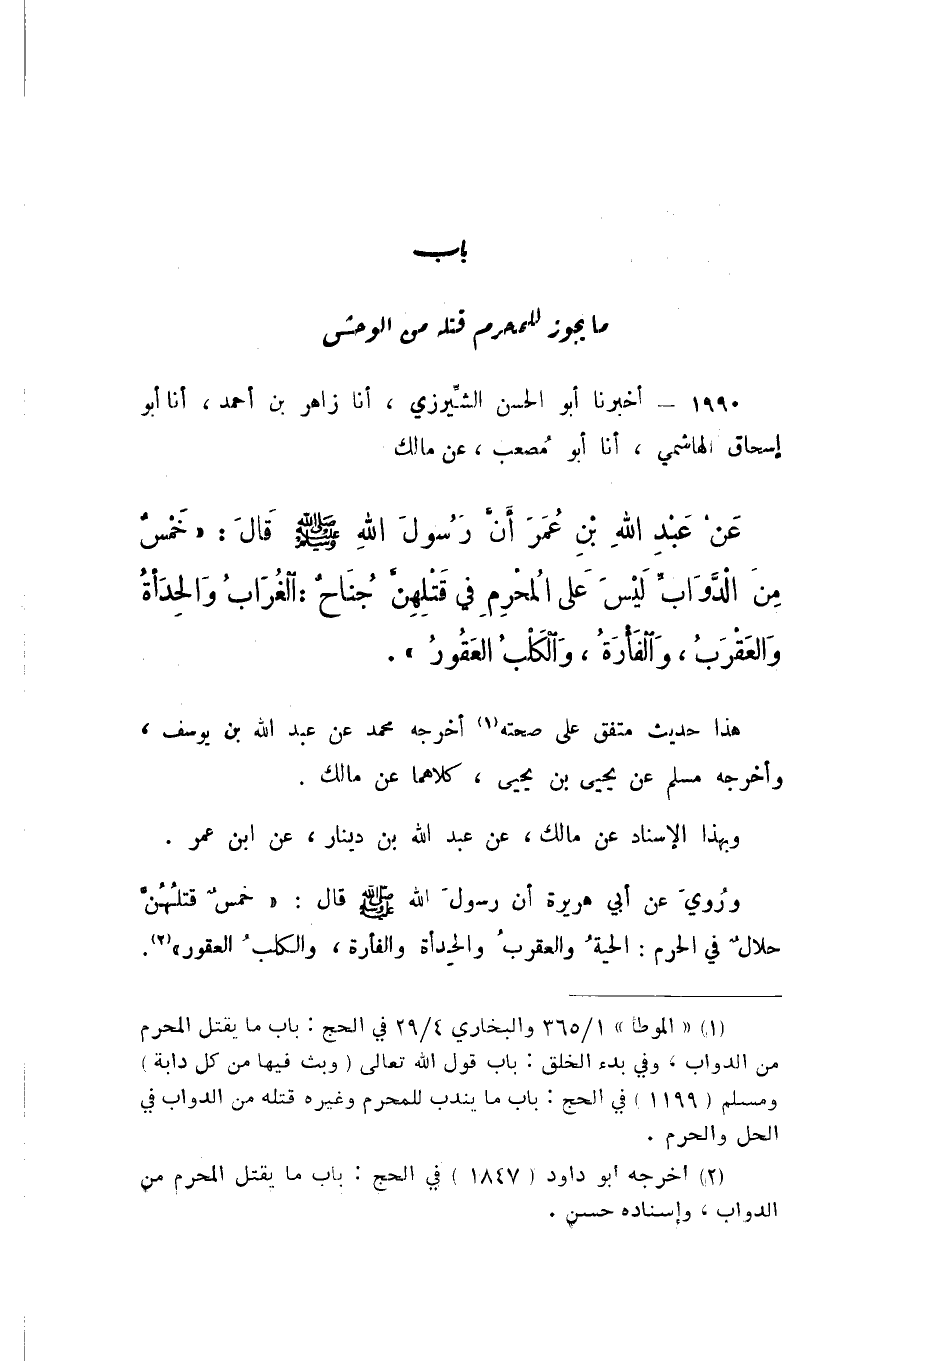 باب
ما يجوز للمحرم قتله من الوحش
١٩٩٠ – أخبرنا أبو الحسن الشِّيرزي ، أنا زاهر بن أحمد ، أنا أبو
إسحاق الهاشمي ، أنا أبو مُصعب ، عن مالك
عَنْ عَبْدِ اللهِ بْنِ عُمَرَ أَنَّ رَسُولَ اللهِ ﷺ قَالَ : « خَمْسٌ
مِنَ الْدَّوَابِّ لَيْسَ عَلى الُمحْرِمِ فِي قَتْلِهِنَّ جُنَاحٌ : اَلْغُرَابُ وَالحِدَأَةُ
وَالعَقْرَبُ ، وَالْفَأْرَةُ ، وَالْكَلْبُ العَقُورُ » .
هذا حديث متفق على صحته(١) أخرجه محمد عن عبد الله بن يوسف ،
وأخرجه مسلم عن يحيى بن يحيى ، كلاهما عن مالك .
وبهذا الإسناد عن مالك ، عن عبد الله بن دينار ، عن ابن عمر .
ورُويَ عن أبي هريرة أن رسولَ الله ﷺ قال : « خمسٌ قتلُهُنَّ
حلالٌ في الحرم : الحيةُ والعقربُ والحِدأة والفأرة ، والكلبُ العقور »(٢).
(١) « الموطأ » ٣٦٥/١ والبخاري ٢٩/٤ في الحج : باب ما يقتل المحرم
من الدواب ، وفي بدء الخلق : باب قول الله تعالى ( وبث فيها من كل دابة )
ومسلم ( ١١٩٩ ) في الحج : باب ما يندب للمحرم وغيره قتله من الدواب في
الحل والحرم .
(٢) أخرجه أبو داود ( ١٨٤٧ ) في الحج : باب ما يقتل المحرم من
الدواب ، وإسناده حسن .